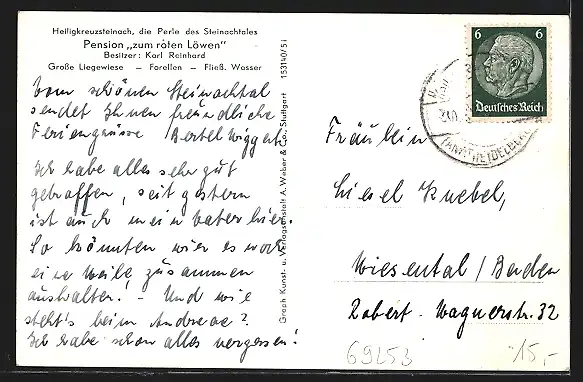 Heiligkreuzsteinach, die Perle des Steinachtales
Pension „zum roten Löwen"
Besitzer: Karl Reinhard
Große Liegewiese — Forellen — Fließ. Wasser
Vom schönen Steinachtal
sendet Ihnen freundliche
Feriengrüsse Bertel Wiggert
Ich habe alles sehr gut
getroffen, seit gestern
ist auch mein Vater hier.
So könnten wir es noch
eine Weile zusammen
aushalten! - Und wie
steht's beim Andreae?
Ich habe schon alles vergessen!
153140/5i
Graph. Kunst- u. Verlagsanstalt A. Weber & Co., Stuttgart
6 6
Deutsches Reich
(AMT HEIDELBERG)
Fräulein
Liesel Knebel,
Wiesental/Baden
Robert-Wagnerstr. 32
69253
15,-